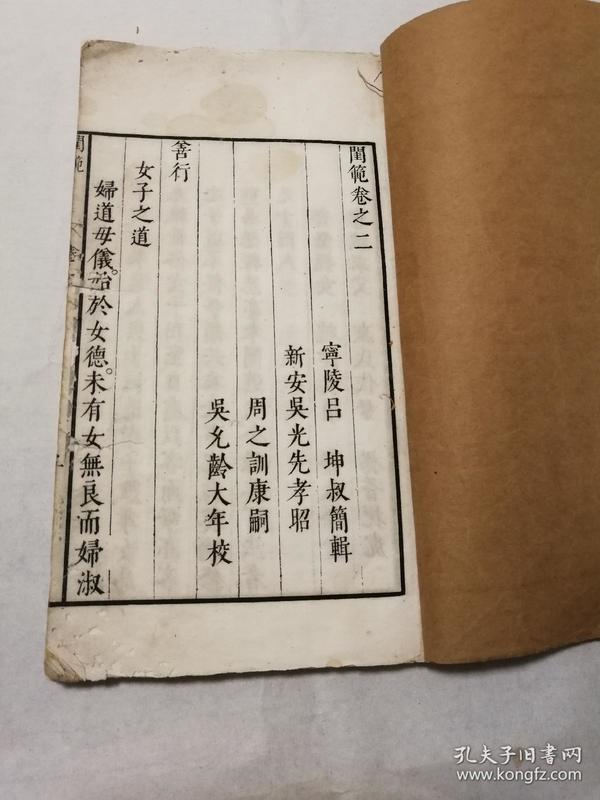 閨範卷之二
寧陵呂 坤叔簡輯
新安吳光先孝昭
周之訓康嗣
吳允齡大年校
善行
女子之道
婦道母儀。始於女德。未有女無良而婦淑
閨範
孔夫子旧书网
www.kongfz.com